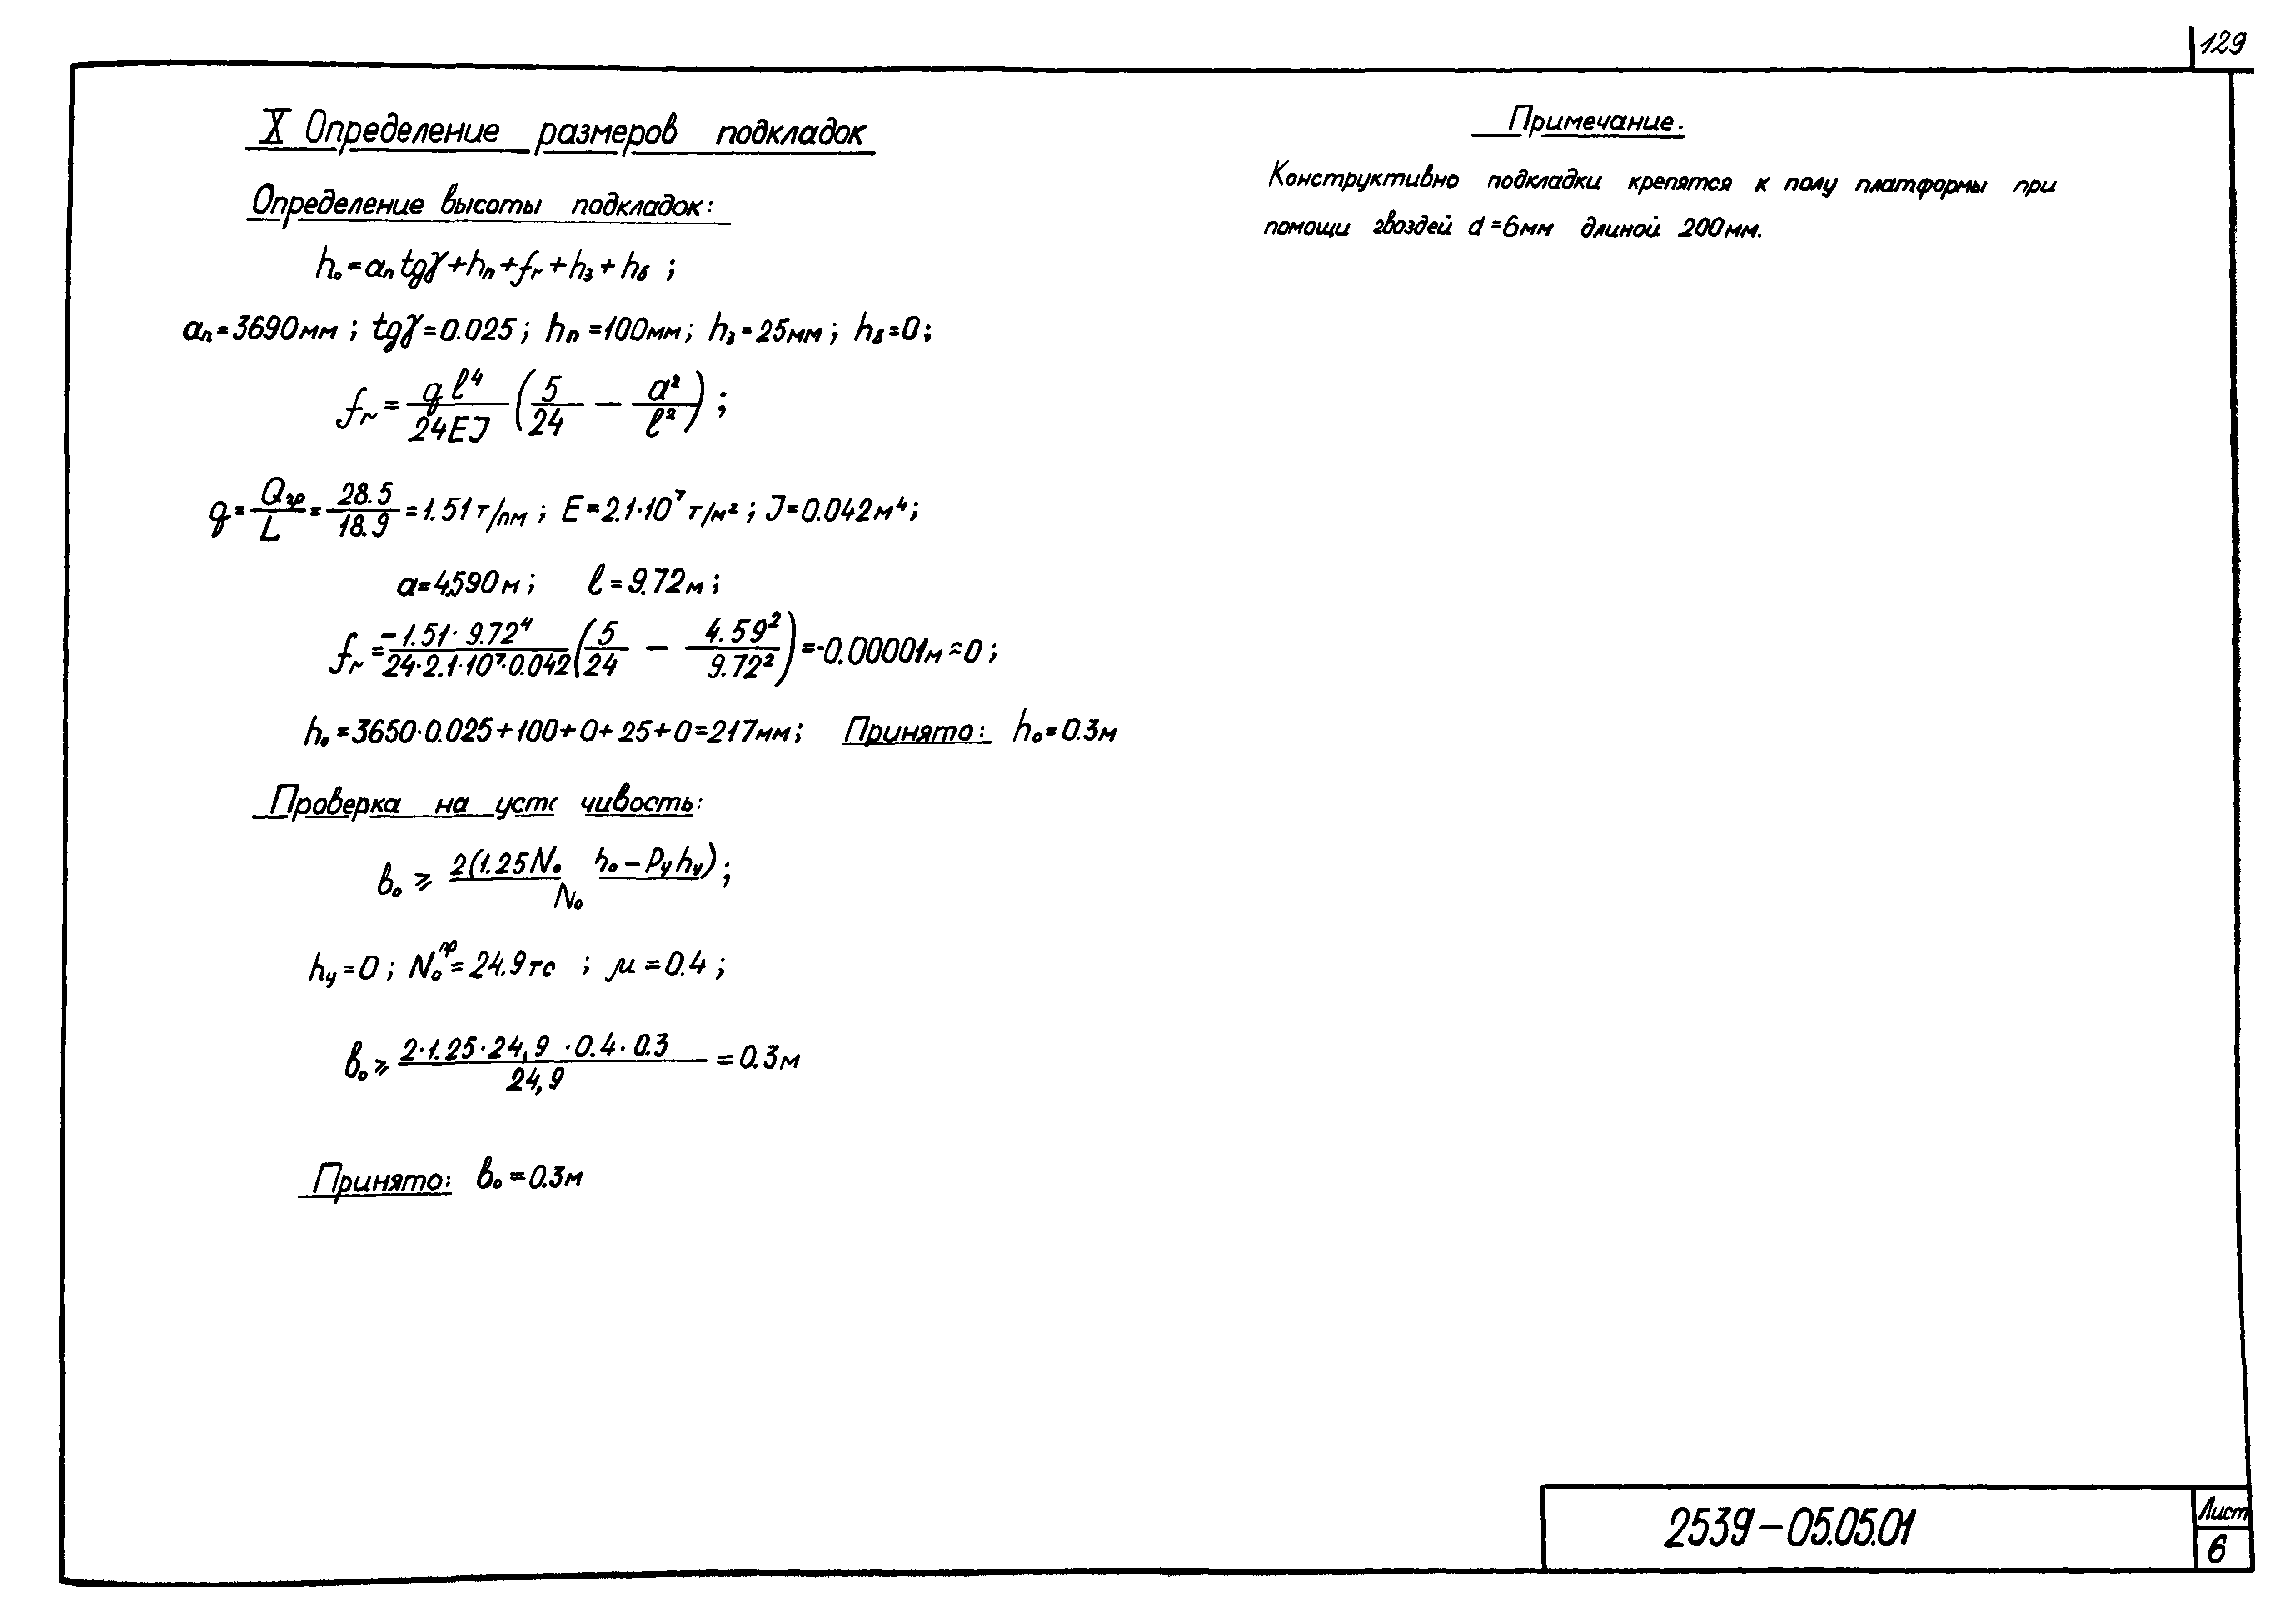 129
X Определение размеров подкладок
Определение высоты подкладок:
h₀ = aₙ tgγ + hₙ + fᵣ + h₃ + hδ ;
aₙ = 3690мм ; tgγ = 0.025 ; hₙ = 100мм ; h₃ = 25мм ; hδ = 0 ;
fᵣ = q ℓ⁴ / 24EJ (5/24 − a²/ℓ²) ;
q = Qгр / L = 28.5 / 18.9 = 1.51 т/пм ; E = 2.1·10⁷ т/м² ; J = 0.042м⁴ ;
a = 4.590м ; ℓ = 9.72м ;
fᵣ = −1.51·9.72⁴ / 24·2.1·10⁷·0.042 (5/24 − 4.59²/9.72²) = -0.00001м ≈ 0 ;
h₀ = 3650·0.025+100+0+25+0=217мм ; Принято: h₀ = 0.3м
Проверка на уст чивость:
b₀ ⩾ 2(1.25N₀ h₀ − Pyhy) / N₀ ;
hy = 0 ; N₀ᵖᵖ = 24.9тс ; μ = 0.4 ;
b₀ ⩾ 2·1.25·24,9 ·0.4·0.3 / 24,9 = 0.3м
Принято: b₀ = 0.3м
Примечание.
Конструктивно подкладки крепятся к полу платформы при
помощи гвоздей d=6мм длиной 200мм.
2539−05.05.01
Лист
6